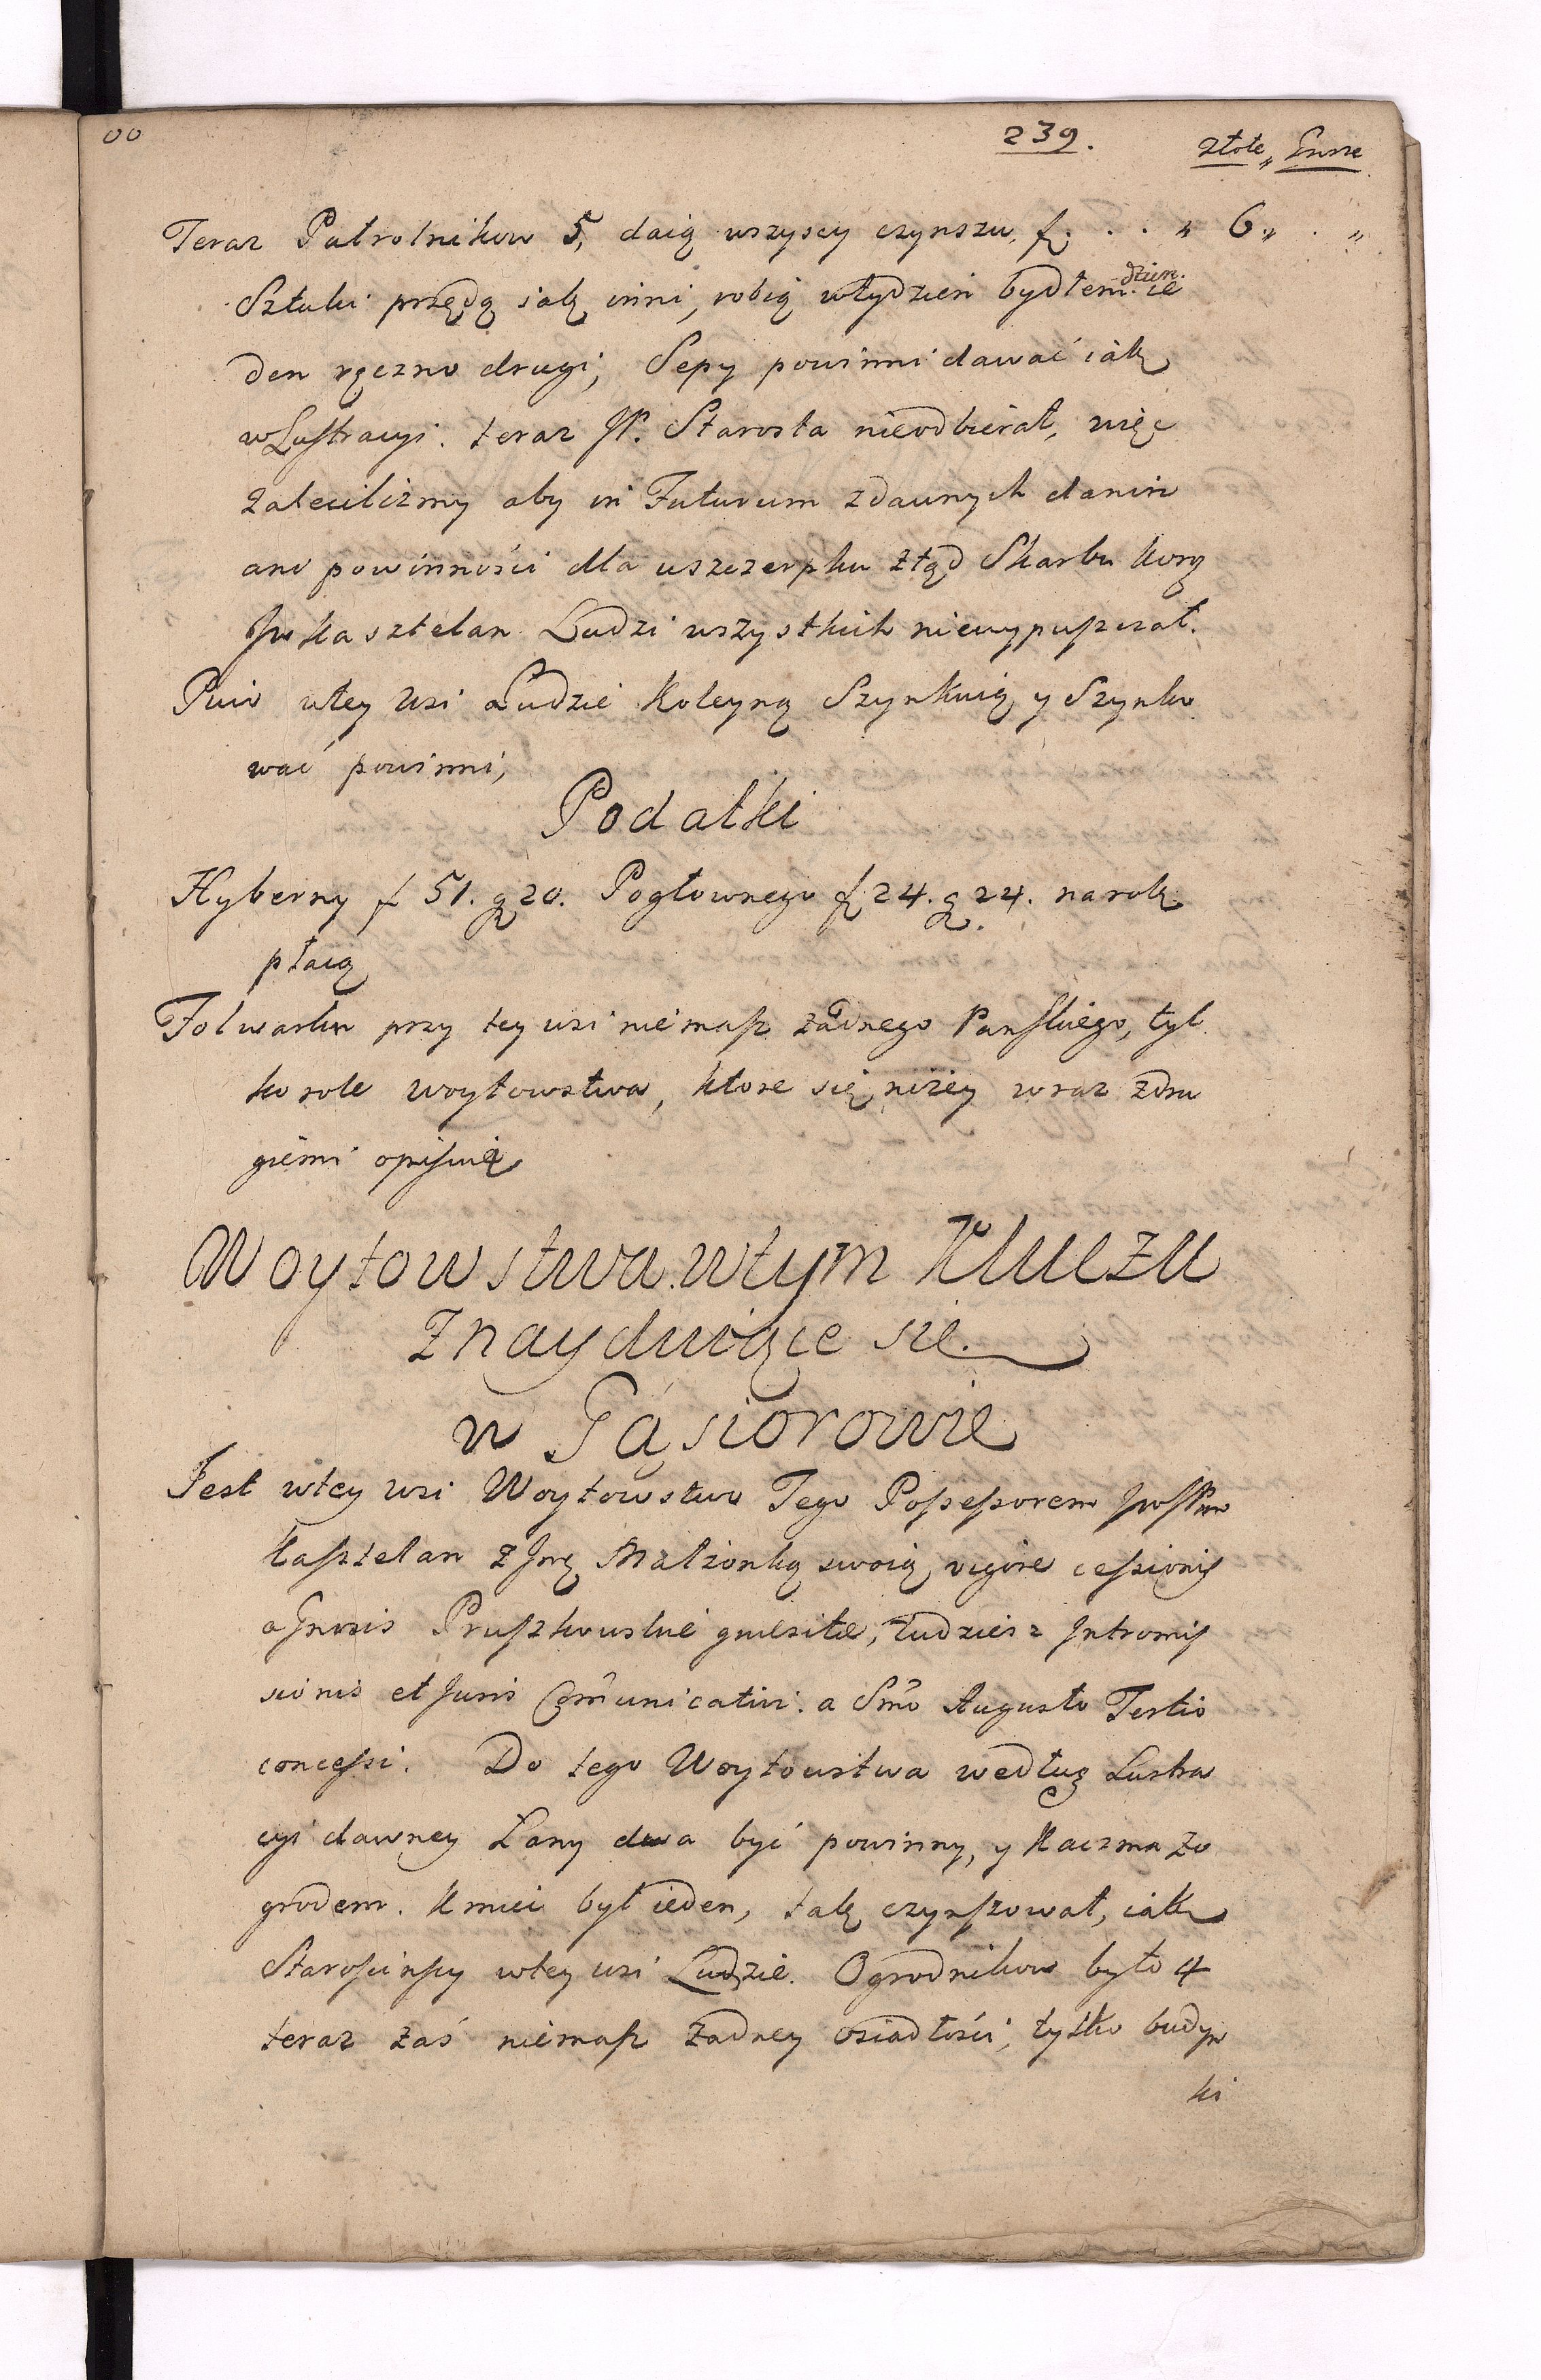 00
239.
złote „ Grosze
Teraz Pułrolnikow 5, daią wszyscy czynszu, f. . . . „ 6 „ . „
Sztuki przędą iak inni, robią wtydzien bydłem dzien ie
den ręczno drugi, Sepy powinni dawać iak
w Lustracyi. teraz JP. Starosta nieodbierał, więc
zaleciliżmy aby in Futurum zdawnych danin
ano powinności dla uszczerpku ztąd Skarbu Korg
Jw Kasztelan Ludzi wszystkich niewypuszczał.
Piwo wtey wsi Ludzie Koleyną Szynkuią y Szynko
wać powinni,
Podatki
Hyberny f 51. g 20. Pogłownego f 24. g 24. na rok
płacą
Folwarku przy tey wsi niemasz żadnego Panskiego, tyl
ko role woytowstwa, ktore się niżey wraz zdru
giemi opisuią
Woytowstwa wtym Kluczu
Znayduiące się
w Gąsiorowie
Jest wtey wsi Woytowstwo Tego Possessorem
Kasztelan z Jmę Małżonką swoią, vigore cessionis
a Gnosis Pruszkowskie quesitæ, tudziesz Intromis
sionis et Juris Communicativi. a Smo Augusto Tertio
concessi. Do tego Woytowstwa według Lustra
cyi dawney Łany dwa być powinny, y Kaczma zo
grodem. Kmieć był ieden, tak czynszował, iak
Starościnscy wtey wsi Ludzie. Ogrodnikow było 4
teraz zaś niemasz żadney osiadłości, tylko budyn
ki